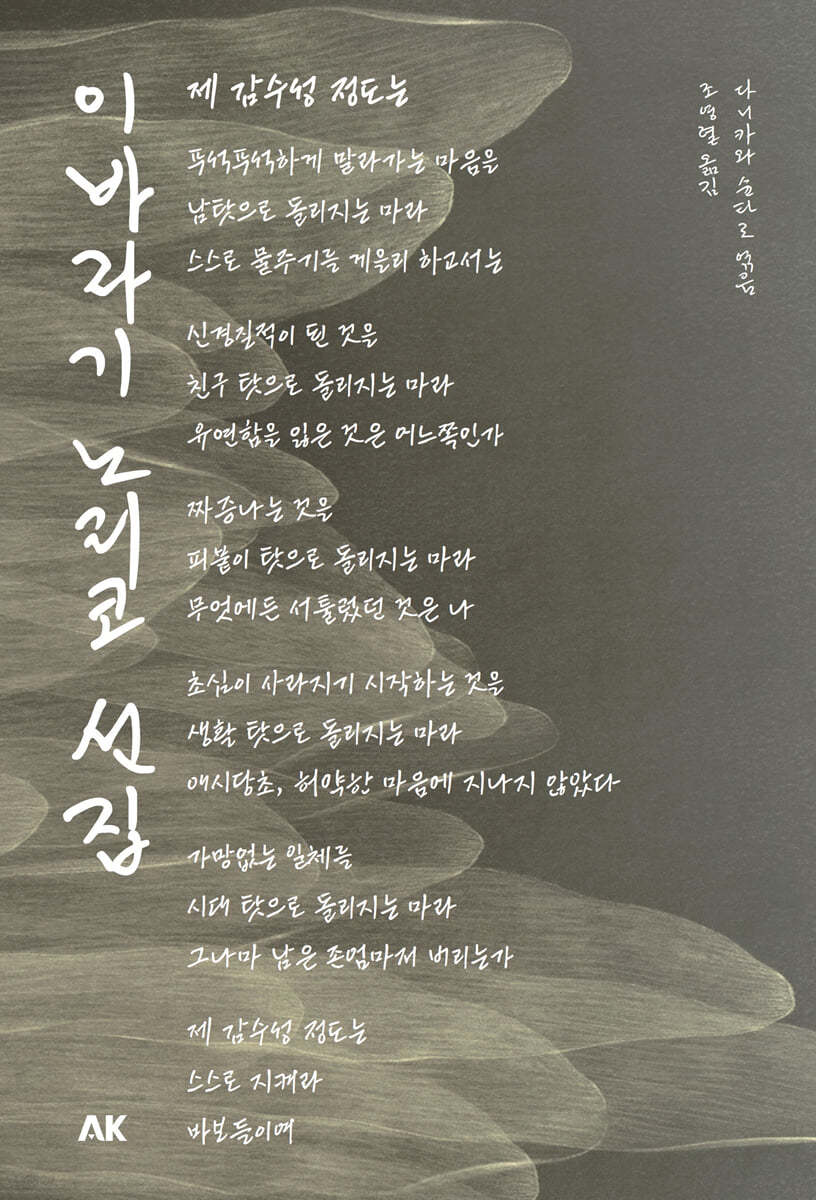 이바라기 노리코 선집
제 감수성 정도는
푸석푸석하게 말라가는 마음을
남탓으로 돌리지는 마라
스스로 물주기를 게을리 하고서는
신경질적이 된 것을
친구 탓으로 돌리지는 마라
유연함을 잃은 것은 어느쪽인가
짜증나는 것을
피붙이 탓으로 돌리지는 마라
무엇에든 서툴렀던 것은 나
초심이 사라지기 시작하는 것을
생활 탓으로 돌리지는 마라
애시당초, 허약한 마음에 지나지 않았다
가망없는 일체를
시대 탓으로 돌리지는 마라
그나마 남은 존엄마저 버리는가
제 감수성 정도는
스스로 지켜라
바보들이여
다니카와 슌타로 엮음
조영렬 옮김
AK